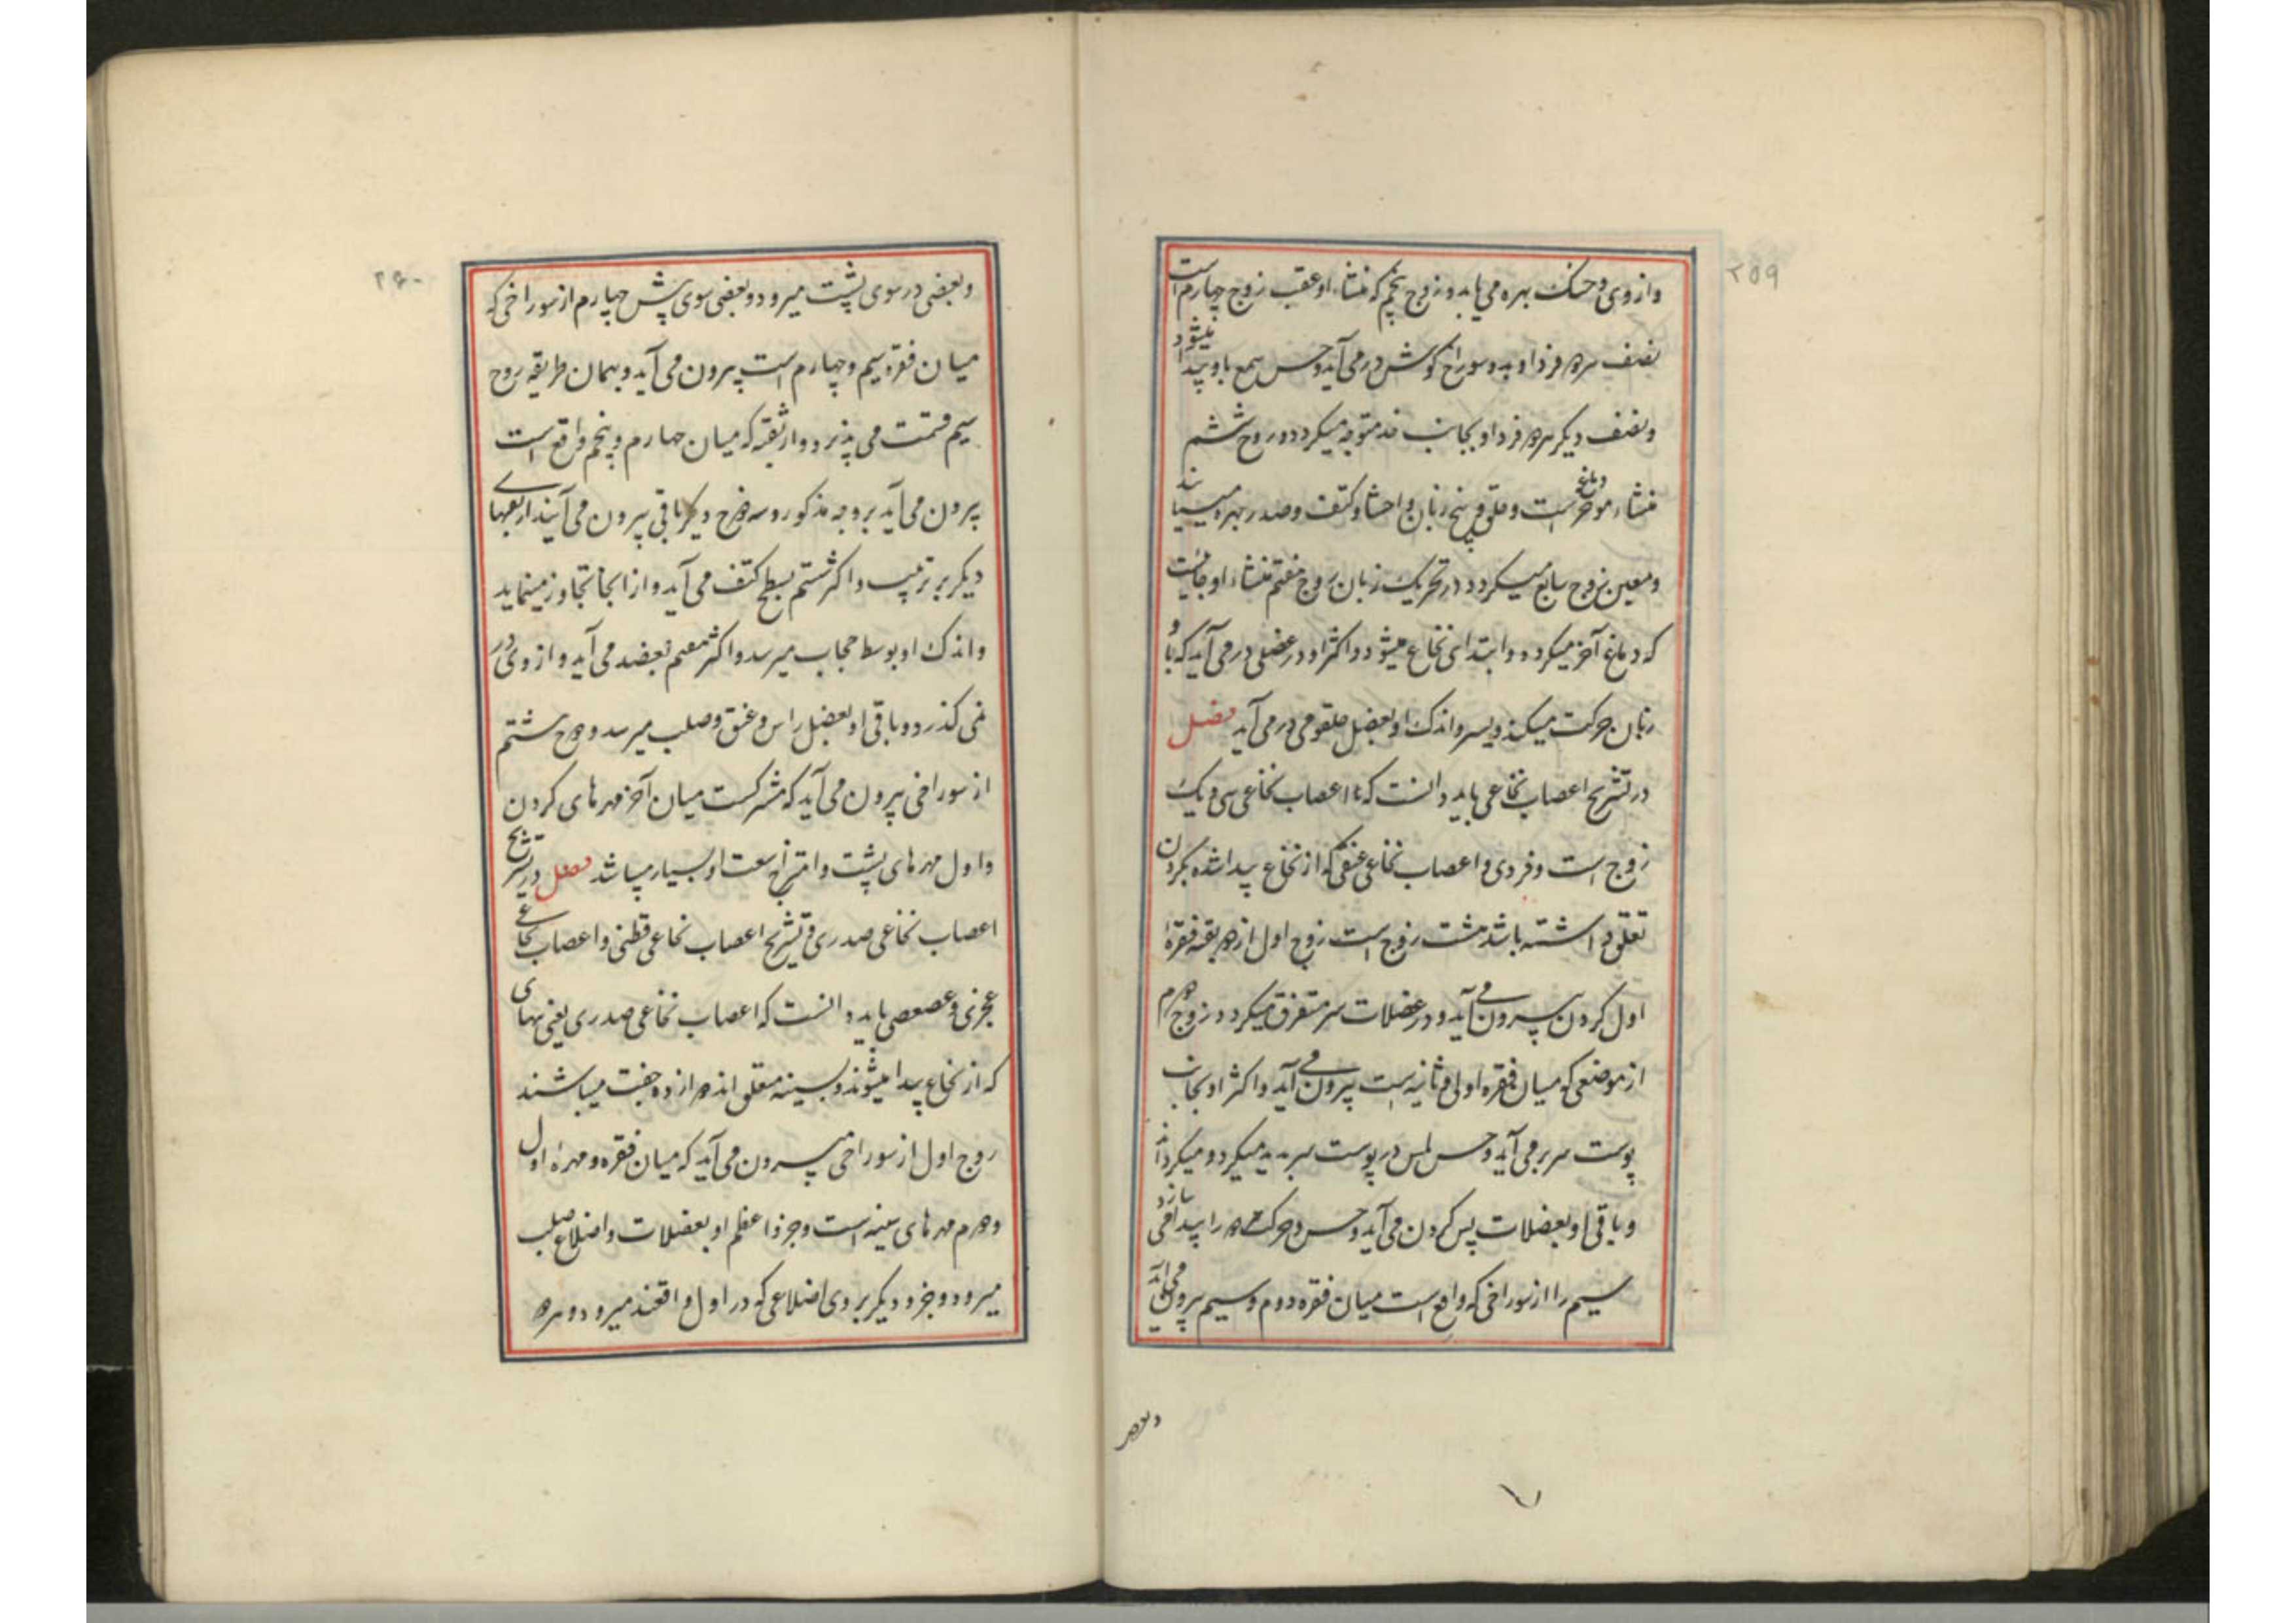 ۲۵۹
وازوی وحنک بهره می یابد و زوج پنجم که منشاء او عقب زوج چهارم است
نصف هر فرد او بدو سوراخ گوش در می آید وحس سمع باو پیدا میشود
ونصف دیکر هر فرد او بجانب خد متوجه میکردد وزوج ششم
منشاء موخر دماغ است وحلق وبیخ زبان واحشا وکتف وصدر بهره میسیابند
ومعین زوج سابع میکردد در تحریک زبان زوج هفتم منشاء او جائیست
که دماغ آخر میکردد وابتدای نخاع میشود واکثر او در عضلی در می آید که باو
زبان حرکت میکند ویسر واندک او بعضل حلقومی در می آید فصل
در تشریح اعصاب نخاعی باید دانست که اعصاب نخاعی سی ویک
زوج است وفردی واعصاب نخاعی عنقی که از نخاع پیدا شده بکردن
تعلق داشته باشد هشت زوج است زوج اول از ثقبه فقره
اول کردن بیرون می آید ودر عضلات سر متفرق میکردد وزوج دوم
از موضعی که میان فقره اولی وثانیه است بیرون می آید واکثر او بجانب
پوست سر بر می آید وحس لمس در پوست سر پدید میکردد میکرداند
وباقی او بعضلات پس کردن می آید وحس وحرکت را پیدا می سازد
سیم را از سوراخی که واقع است میان فقره دوم وسیم بیرون می آید
وبعضی
۲۶۰
وبعضی در سوی پشت میرود وبعضی سوی پیش چهارم از سوراخی که
میان فقره سیم وچهارم است بیرون می آید وبهمان طریقه زوج
سیم قسمت می پذیرد واز ثقبه که میان چهارم وپنجم واقع است
بیرون می آید بر وجه مذکور وسه زوج دیکر باقی بیرون می آیند از ثقبهای
دیکر بر ترتیب واکثر ششم بسطح کتف می آید واز انجا تجاوز مینماید
واندک او بوسط حجاب میرسد واکثر هفتم بعضد می آید واز وی در
نمی کذرد وباقی او بعضل راس وعنق وصلب میرسد وزوج هشتم
از سوراخی بیرون می آید که مشترکست میان آخر مهرهای کردن
واول مهرهای پشت وامتزاج سعت او بسیار میباشد فصل در تشریح
اعصاب نخاعی صدری وتشریح اعصاب نخاعی قطنی واعصاب نخاعی
عجزی وعصعصی باید دانست که اعصاب نخاعی صدری یعنی پیهای
که از نخاع پیدا میشوند وبسینه متعلق اند دوازده جفت میباشند
زوج اول از سوراخی بیرون می آید که میان فقره ومهره اول
ودوم مهرهای سینه است وجزؤ اعظم او بعضلات واضلاع صلب
میرود وجزو دیکر بر وی اضلاعی که در اول واقعند میرود وبهره